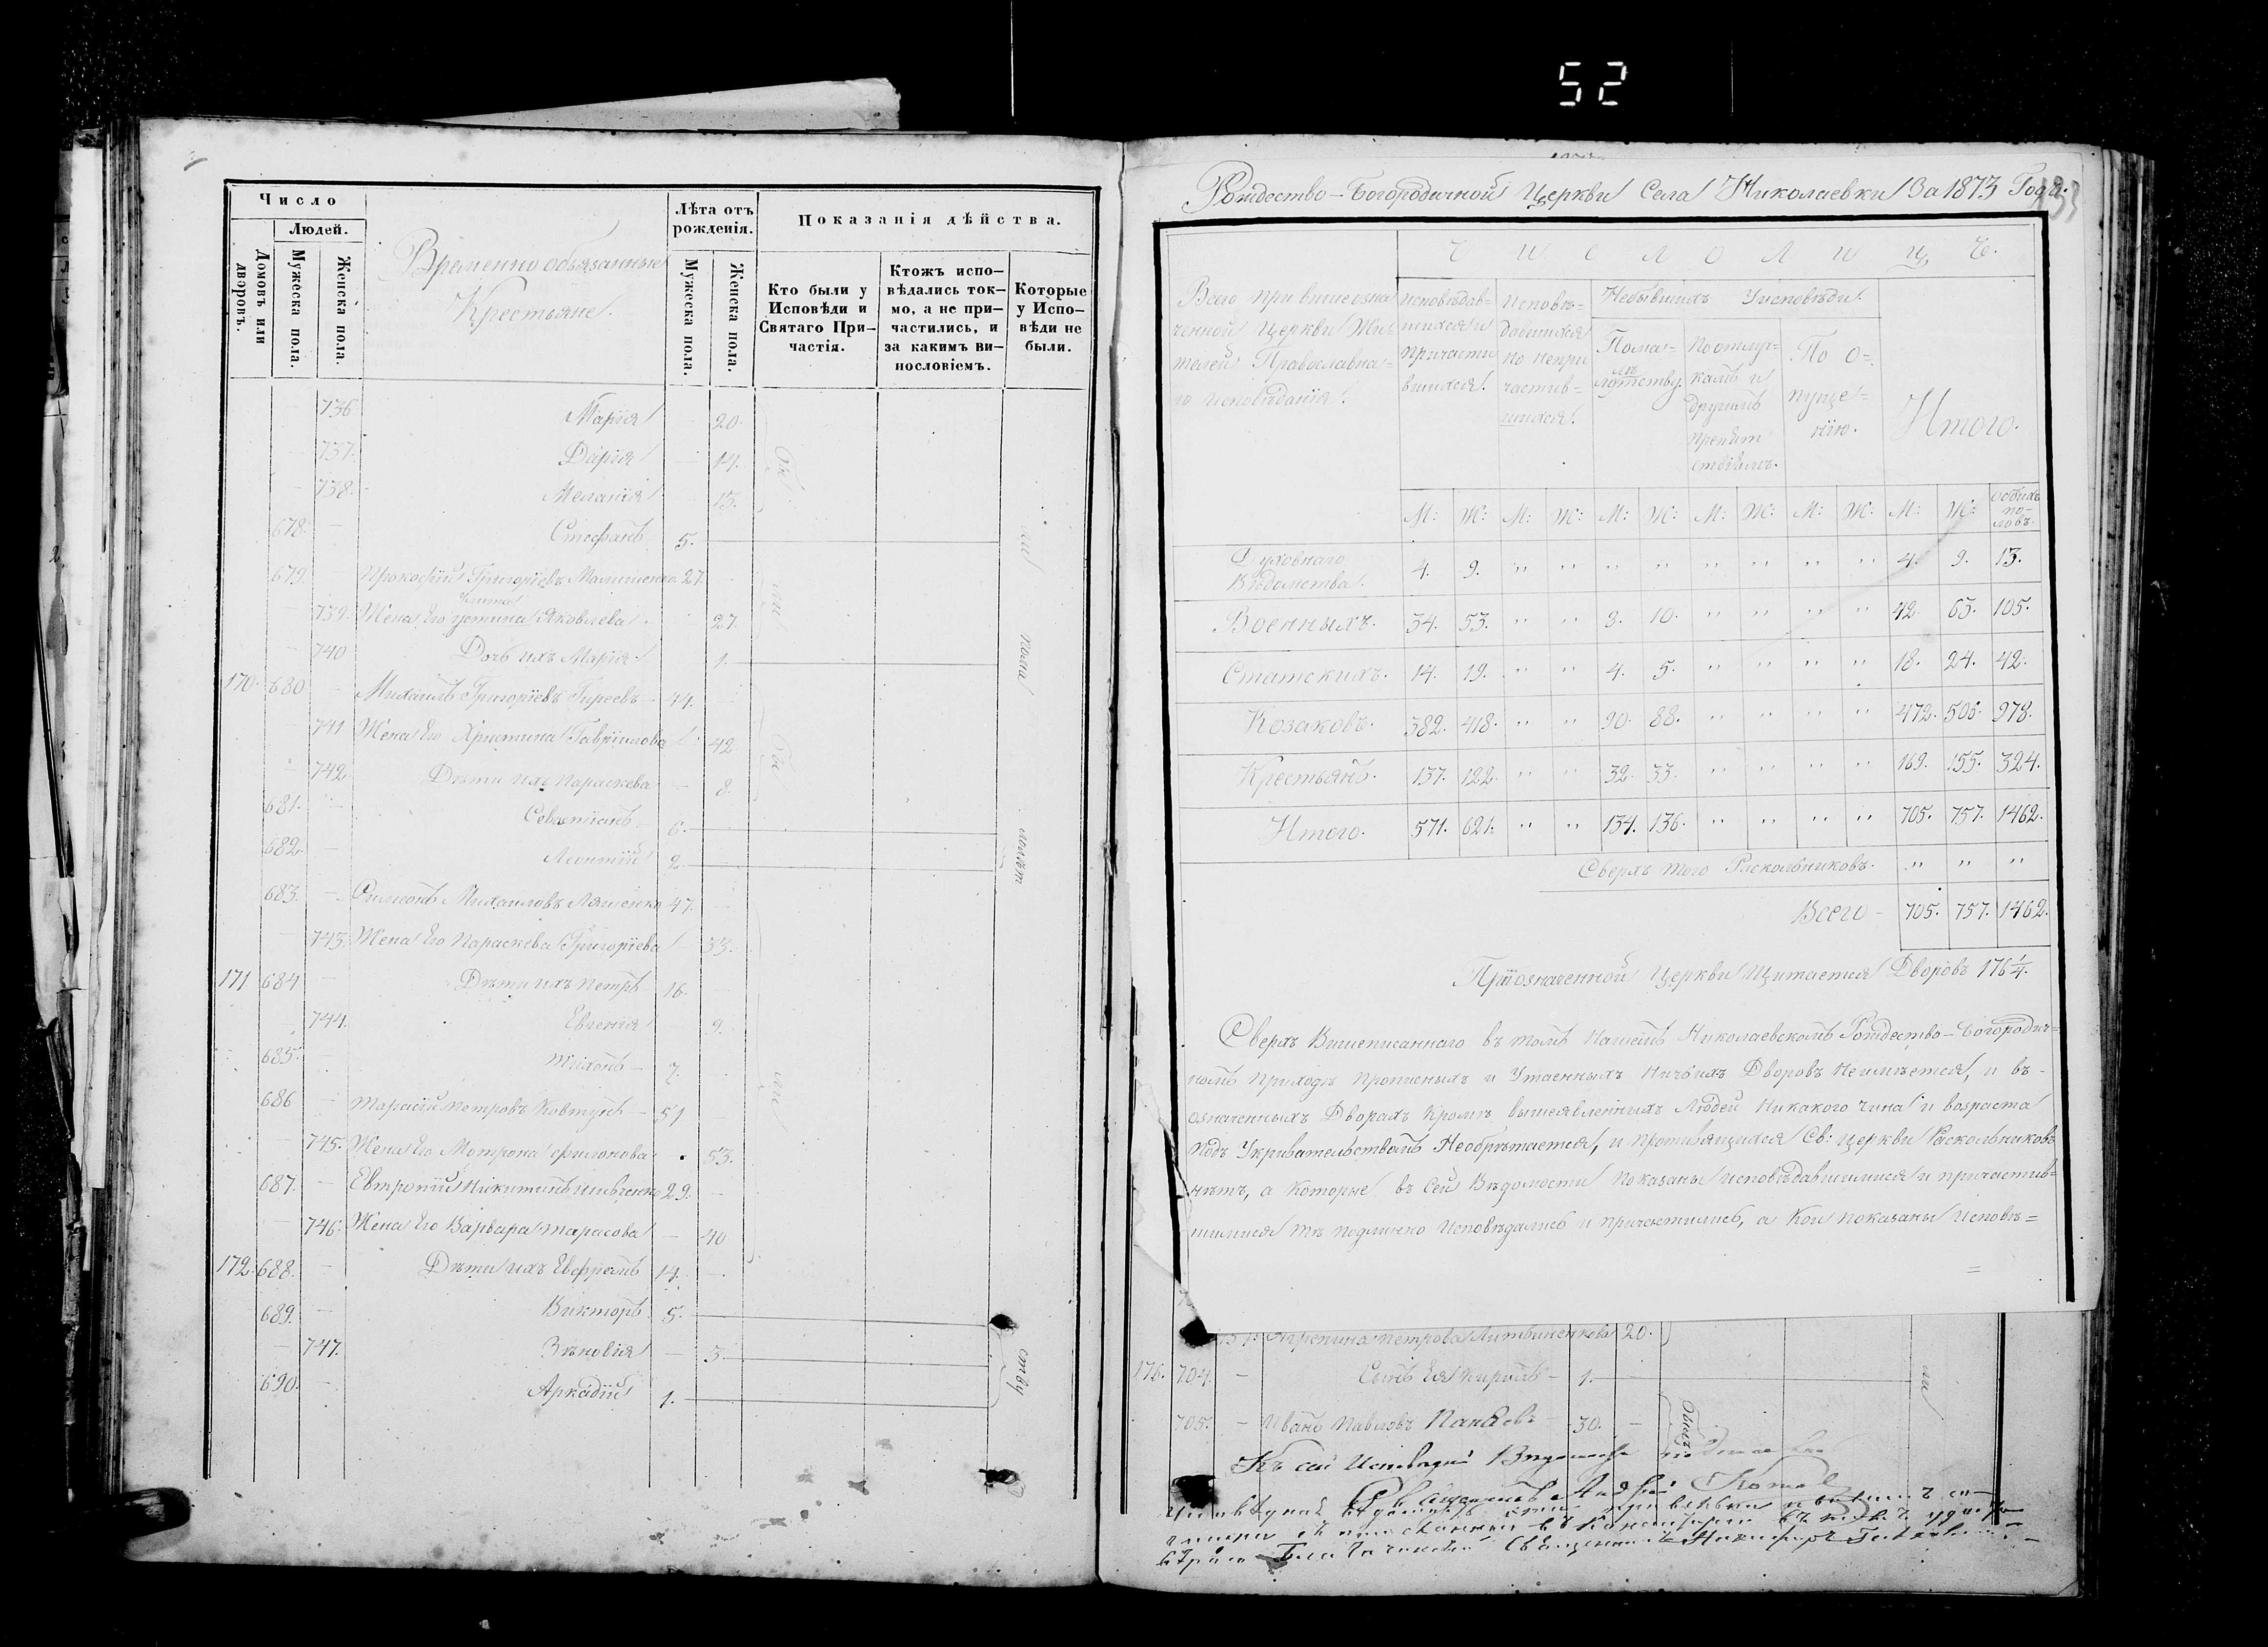 52
Число
Людей.
Домовъ или дворовъ.
Мужеска пола.
Женска пола.
Временно обязанные
Крестьяне.
Лѣта отъ рожденія.
Мужеска пола.
Женска пола.
Показанія дѣйства.
Кто были у Исповѣди и Святаго При-частія.
Ктожъ испо-вѣдались ток-мо, а не при-частились, и за какимъ ви-нословіемъ.
Которые у Испо-вѣди не были.
736 Марія 20.
737. Дарія 14.
738. Меланія 13.
678. Стефанъ 5.
679. Прокофій Григоріевъ 27.
739. Жена Его Устина Яковлева 27
740 Дочь ихъ Марія 1.
170. 680 Михаилъ Григоріевъ 44.
741 Жена Его Христина Гавріилова 42
742 Дѣти ихъ Параскева 8.
681. Севастіанъ 6.
682. Леонтій 2.
683. Филимонъ Михаиловъ 47.
743. Жена Его Параскева Григоріева 33.
171 684 Дѣти ихъ Петръ 16.
744. Евгенія 9.
685. Тихонъ 7.
686 Тарасій Петровъ Ковтунъ 51
745. Жена Его Мотрона Филонова 53.
687. Евтропій Никитинъ Шевченко 29.
746. Жена Его Варвара Тарасова 40
172. 688. Дѣти ихъ Евфремъ 14.
689. Викторъ 5.
747. Зѣновія 3.
690. Аркадій 1.
Рождество-Богородичной Церкви Села Николаевки За 1873 Годъ.
Число лицъ.
Всего при вишеозна
ченной Церкви Жи
телей Православна=
го исповѣданія.
исповѣдав=шихся и причасти вшихся.
Исповѣ=давшихся но непри частив=шихся.
Небывшихъ Уисповѣди.
По мало=лѣтству.
По отлуч=камъ и другимъ препят ствіямъ.
По о=пуще=нію.
Итого.
М: Ж: М: Ж: М: Ж: М: Ж: М: Ж: М: Ж: обоихъ по-ловъ.
Духовнаго Вѣдомства. 4. 9. " " " " " " " " 4. 9. 13.
Военныхъ. 34. 53. " " 8. 10. " " " " 42 63. 105.
Статскихъ. 14. 19. " " 4. 5. " " " " 18. 24. 42.
Козаковъ. 382. 418. " " 90. 88. " " " " 472. 506. 978.
Крестьянъ. 137. 122. " " 32. 33. " " " " 169. 155. 324.
Итого. 571. 621. " " 134. 136. " " " " 705. 757. 1462.
Сверхъ того Раскольниковъ. " " "
Всего - 705. 757. 1462.
При означенной Церкви Щитается Дворовъ 176 1/4.
Сверхъ Вишеписаннаго въ томъ Нашемъ Николаевскомъ Рождество-Богородич=
номъ Приходѣ прописныхъ и Утаенныхъ Ничьихъ Дворовъ Неимѣется, и въ-
означенныхъ Дворахъ Кромѣ вышеявленныхъ Людей Никакого чина и возраста
подъ Укривательствомъ Необрѣтается, и противящихся Св: Церкви Раскольниковъ
нѣтъ, а которые въ Сей Вѣдомости показаны исповѣдавшимися и причастив=
шимися тѣ подлинно Исповѣдались и причастились, а Кои показаны Исповѣ=
Агрепина Петрова Литвиненкова 20.
176. 704. Сынъ Ея Кирилъ 1.
705. Иванъ Павловъ 30.
Къ сей Исповѣдной Вѣдомости
Священникъ Андрей